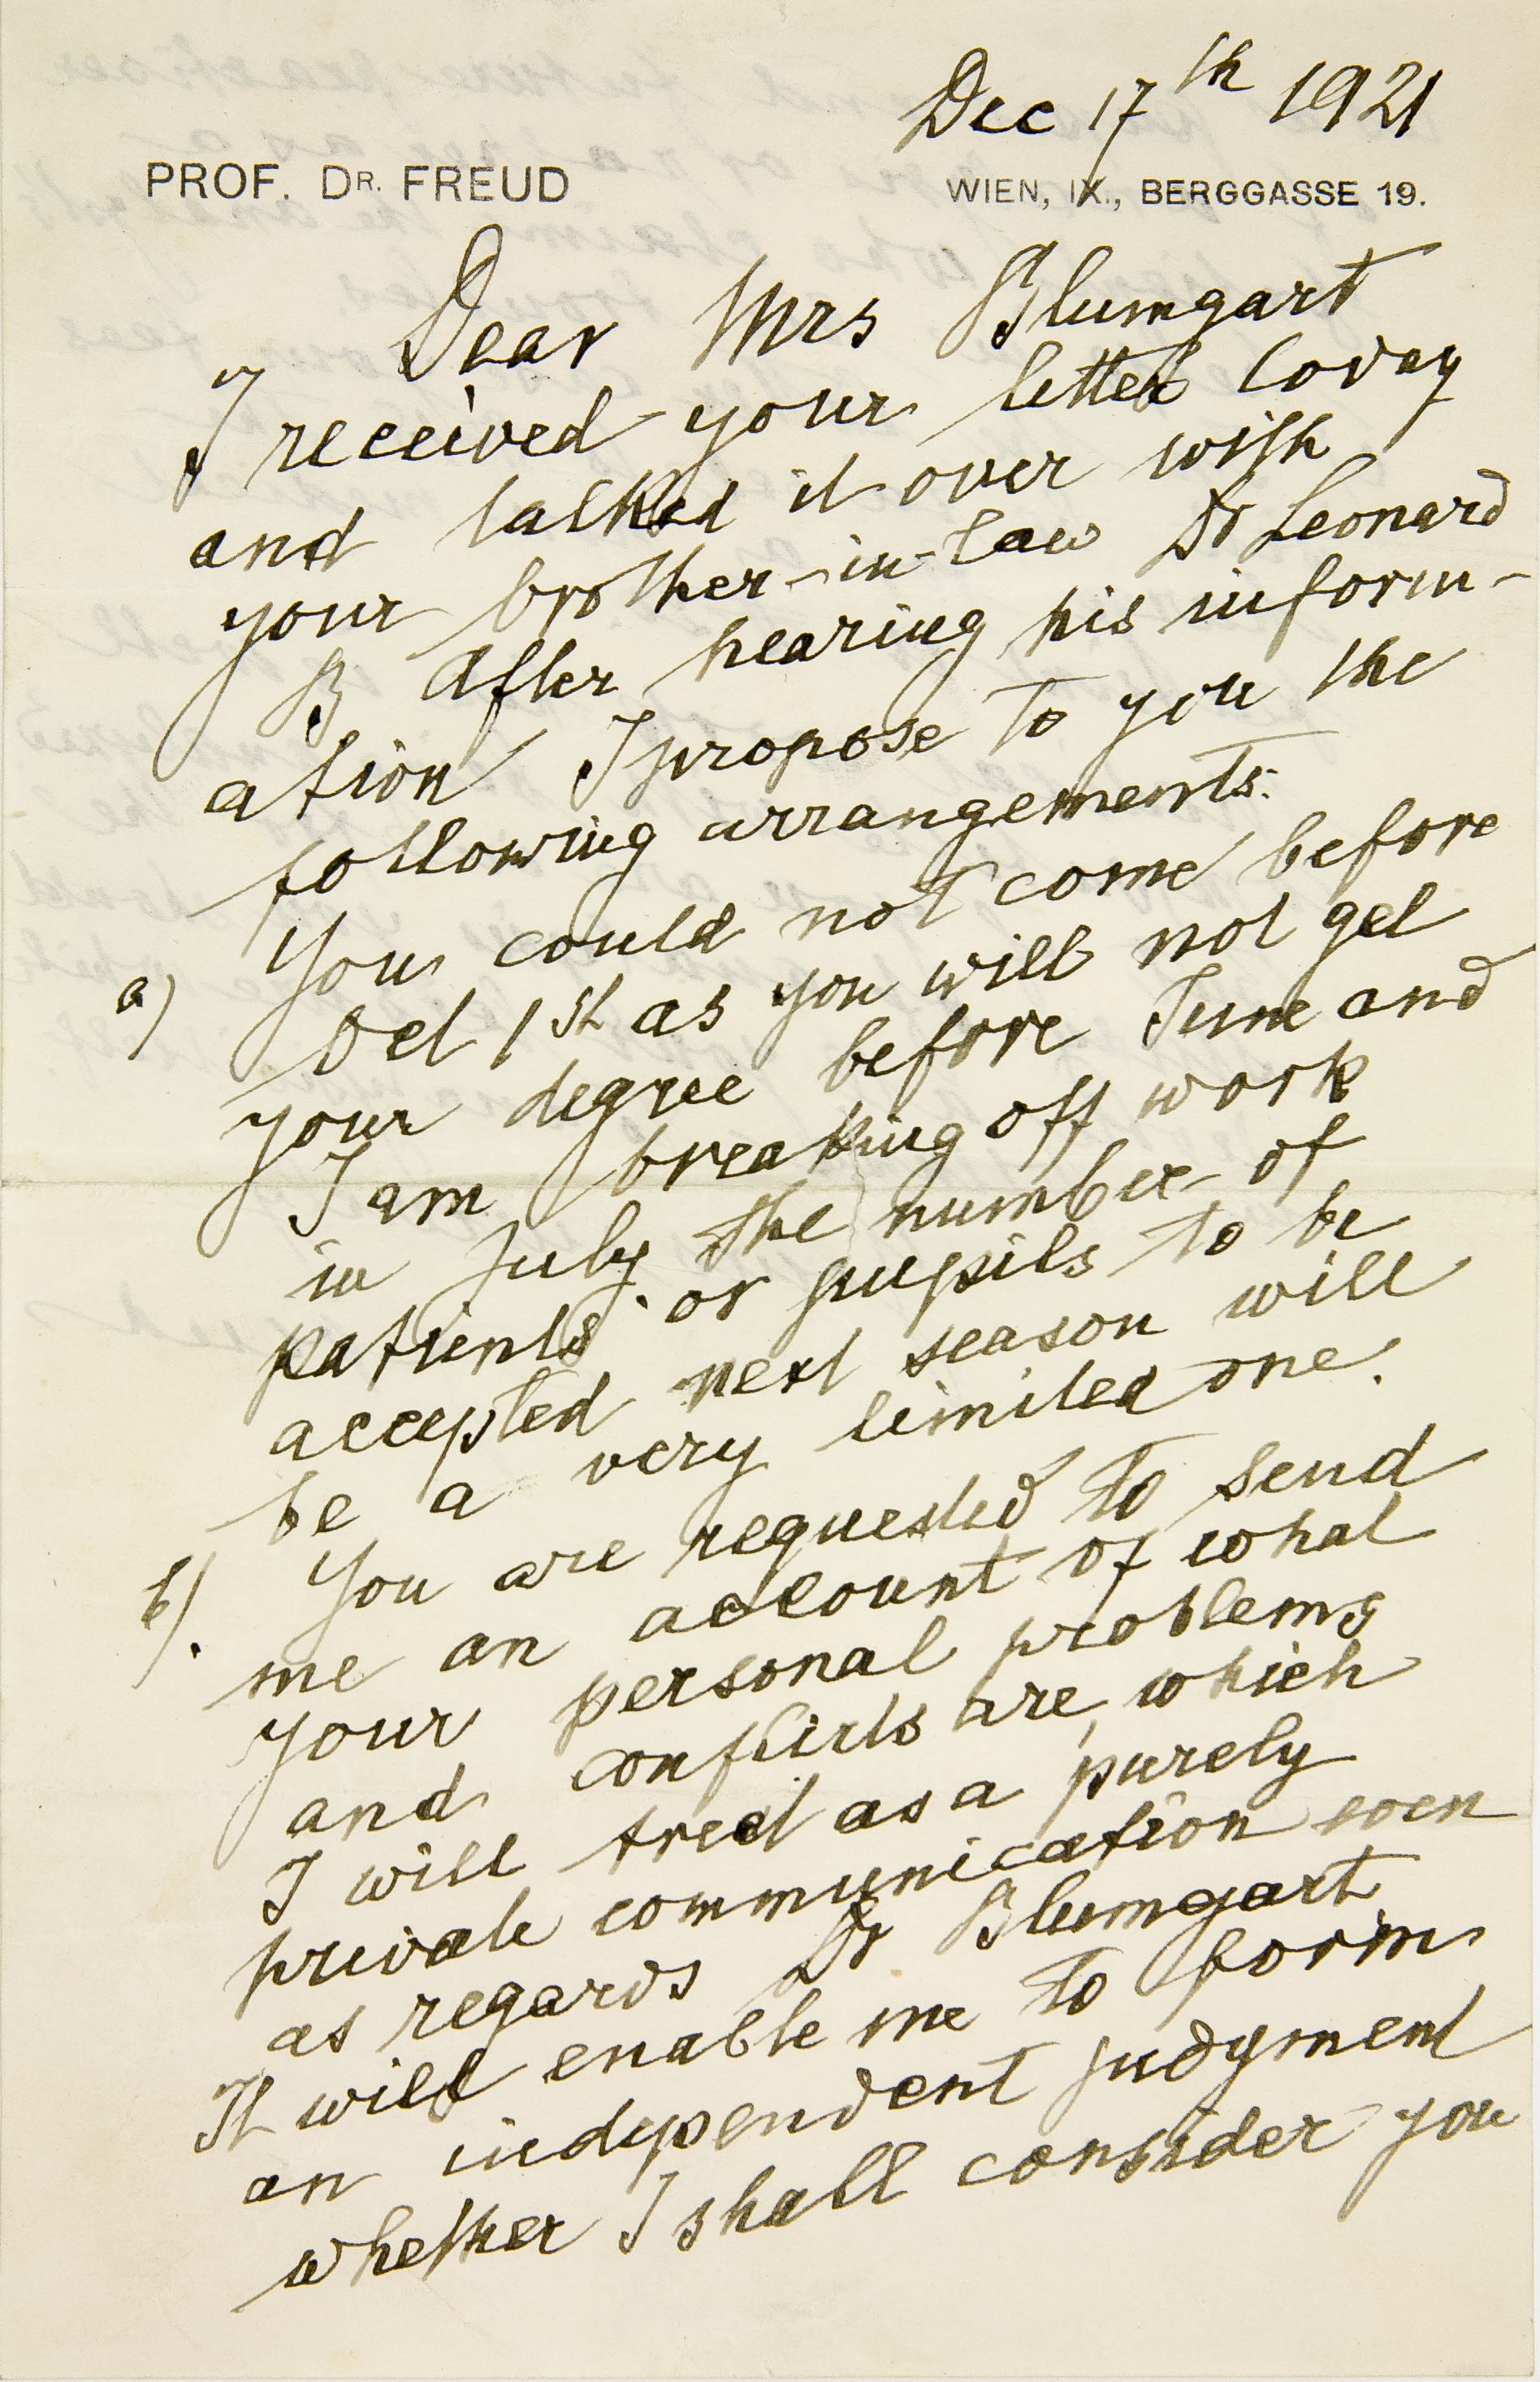 Dec 17th 1921
PROF. DR. FREUD
WIEN, IX., BERGGASSE 19.
Dear Mrs Blumgart
I received your letter today
and talked it over with
your brother-in-law Dr Leonard
B After hearing his inform-
ation I propose to you the
following arrangements:
a) You could not come before
Oct 1st as you will not get
your degree before June and
I am breaking off work
in July. The number of
patients or pupils to be
accepted next season will
be a very limited one.
b). You are requested to send
me an account of what
your personal problems
and conflicts are, which
I will treat as a purely
private communication even
as regards Dr Blumgart.
It will enable me to form
an independent judgment
whether I shall consider you